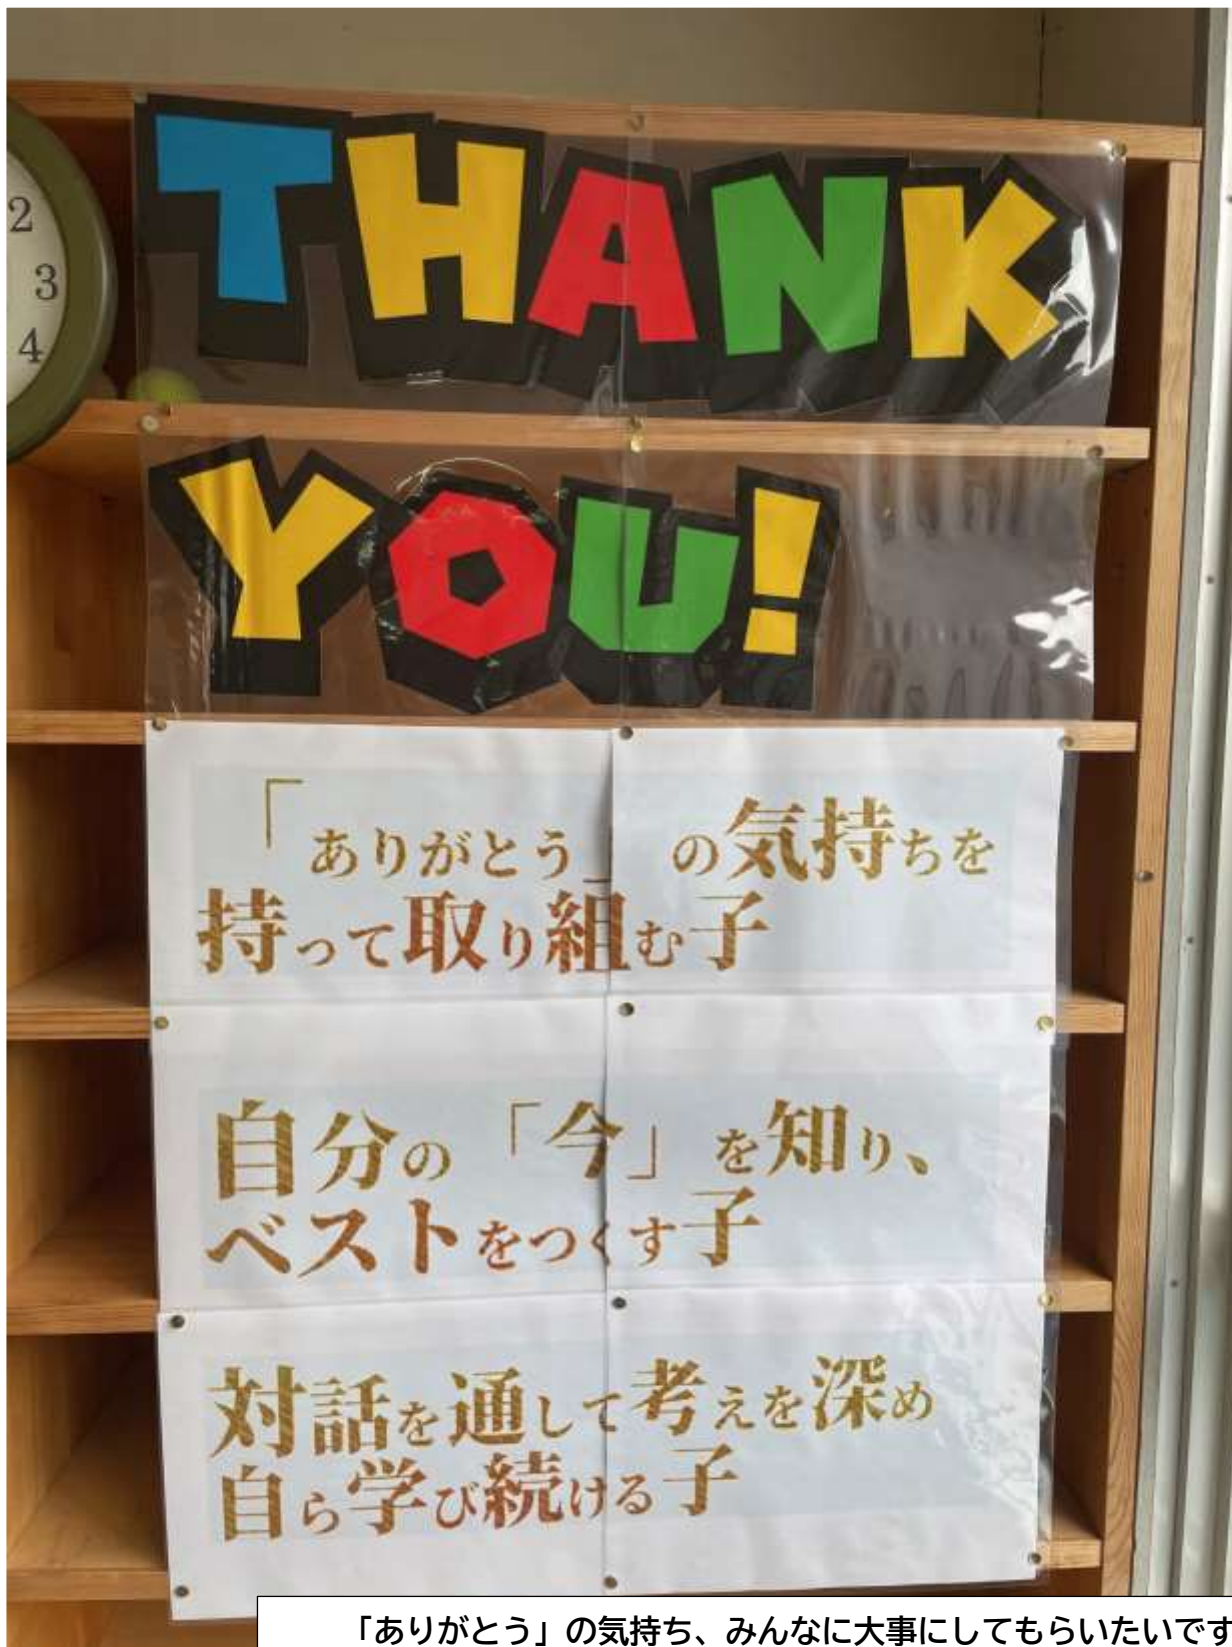 2
3
4
THANK
YOU!
「ありがとう」の気持ちを
持って取り組む子
自分の「今」を知り、
ベストをつくす子
対話を通して考えを深め
自ら学び続ける子
「ありがとう」の気持ち、みんなに大事にしてもらいたいです